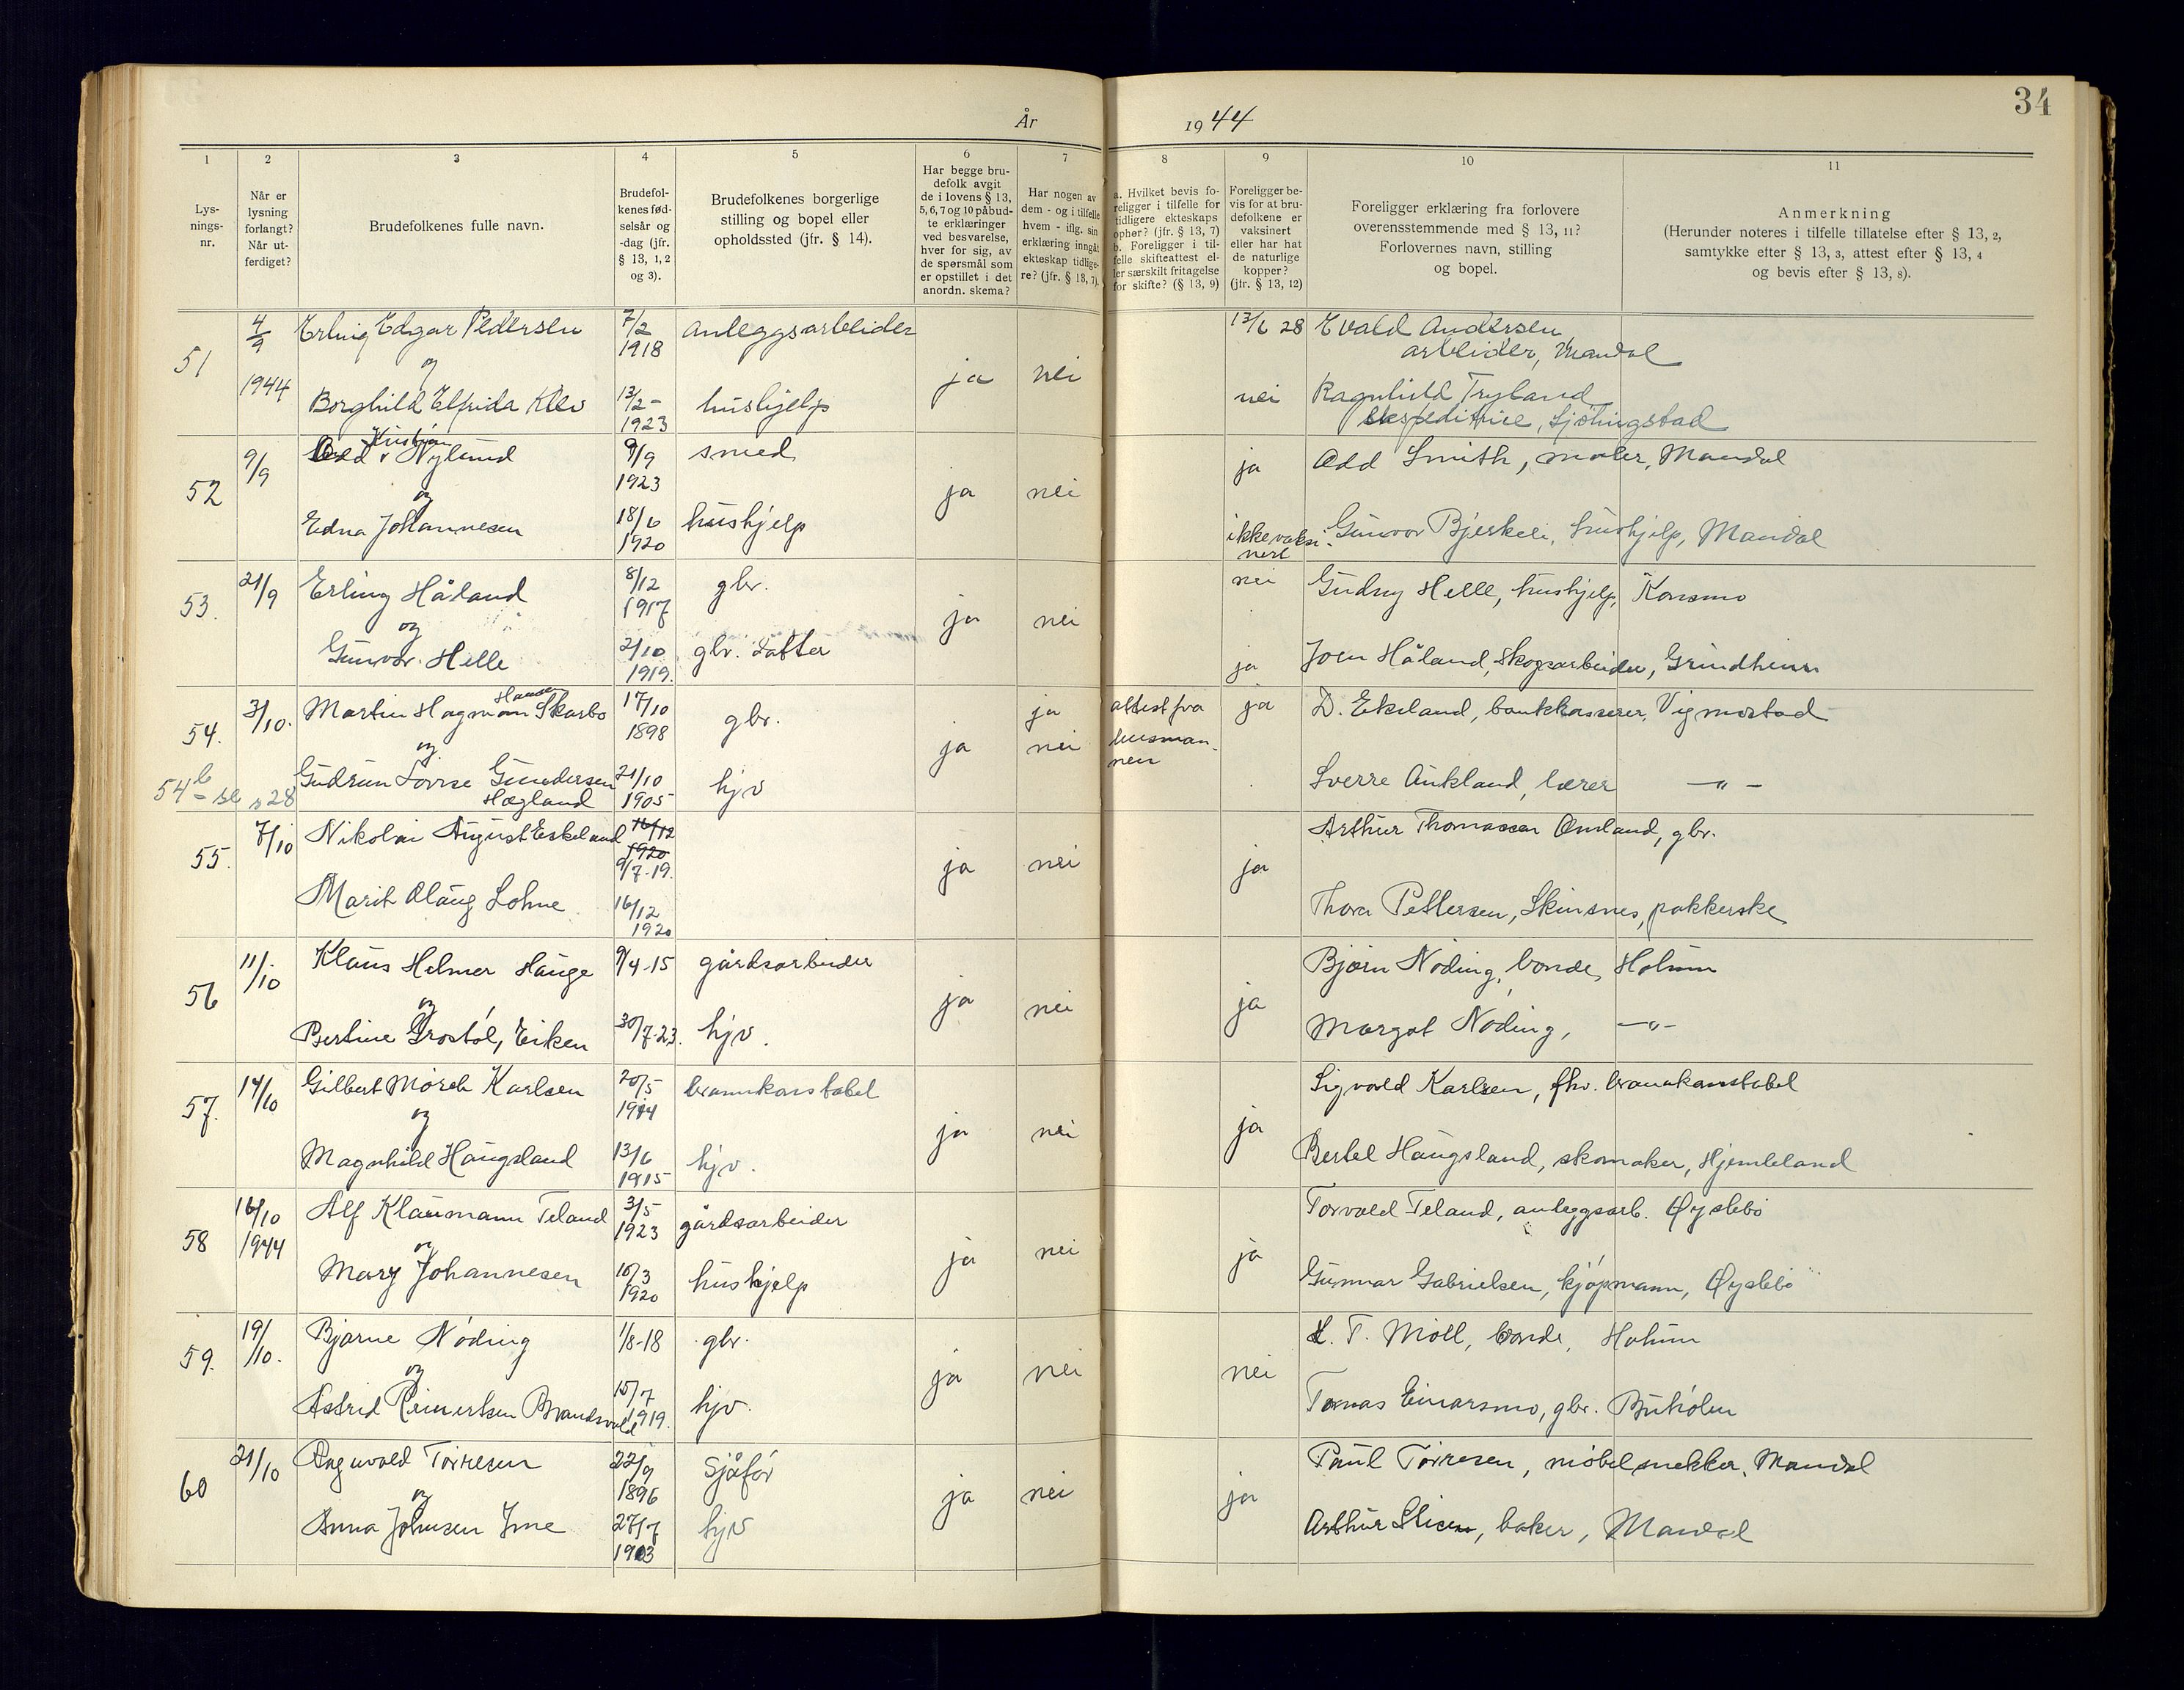 34
År 1944
1 2 3 4 5 6 7 8 9 10 11
Lys-
nings-
nr.
Når er
lysning
forlangt?
Når ut-
ferdiget?
Brudefolkenes fulle navn.
Brudefol-
kenes fød-
selsår og
-dag (jfr.
§ 13, 1, 2
og 3).
Brudefolkenes borgerlige
stilling og bopel eller
opholdssted (jfr. § 14).
Har begge bru-
defolk avgit
de i lovens § 13,
5, 6, 7 og 10 påbud-
te erklæringer
ved besvarelse,
hver for sig, av
de spørsmål som
er opstillet i det
anordn. skema?
Har nogen av
dem - og i tilfelle
hvem - iflg. sin
erklæring inngåt
ekteskap tidlige-
re? (jfr. § 13, 7).
a. Hvilket bevis fo-
religger i tilfelle for
tidligere ekteskaps
ophør? (jfr. § 13, 7)
b. Foreligger i til-
felle skifteattest el-
ler særskilt fritagelse
for skifte? (§ 13, 9)
Foreligger be-
vis for at bru-
defolkene er
vaksinert
eller har hat
de naturlige
kopper?
(jfr. § 13, 12)
Foreligger erklæring fra forlovere
overensstemmende med § 13, 11?
Forlovernes navn, stilling
og bopel.
Anmerkning
(Herunder noteres i tilfelle tillatelse efter § 13, 2,
samtykke efter § 13, 3, attest efter § 13, 4
og bevis efter § 13, 8).
51 4/9 1944 Erling Edgar Pedersen 7/2 1918 anleggsarbeider ja nei 13/6 28 Evald Andersen
arbeider, Mandal
og
Borghild Elfrida Klev 13/2- 1923 hushjelp nei Ragnhild Tryland
ekspeditrise, Sjølingstad
52 9/9 Odd Kristian Nylund 9/9 1923 smed ja nei ja Odd Smith, maler, Mandal
og
Edna Johannesen 18/6 1920 hushjelp ikke vaksi-
nert Gunvor Bjerkeli, hushjelp, Mandal
53. 21/9 Erling Håland 8/12 1917 gbr. ja nei nei Gudny Helle, hushjelp, Konsmo
og
Gunvor Helle 2/10 1919. gbr. datter ja Joen Håland, skogsarbeider, Grindheim
54. 3/10. Martin Hagmann Hansen Skarbo 17/10 1898 gbr. ja ja attest fra
husman-
nen ja D. Eikeland, bankkasserer, Vigmostad
og
54b Gudrun Gundersen
Høgland 21/10 1905 hjv nei Sverre Aukland, lærer —"—
55. 7/10 Nikolai August Eskeland 16/12 1920 9/7-19. ja nei ja Arthur Thomassen Omland, gbr.
Marit Olaug Lohne 16/12 1920 Thora Pettersen, Skinsnes, pakkerske
56 11/10 Klaus Helmer Hauge 9/4-15 gårdsarbeider ja nei ja Bjørn Nøding, bonde, Holum
og
Bertine Grostøl, Eiken 30/7-23. hjv. Margot Nøding, —"—
57. 14/10 Gilbert Mørch Karlsen 20/5 1914 brannkonstabel ja nei ja Sigvald Karlsen, fhv. brannkonstabel
og
Magnhild Haugsland 13/6 1915 hjv. Bertel Haugsland, skomaker, Hjemleland
58 16/10 1944 Alf Klausmann Teland 3/5 1923 gårdsarbeider ja nei ja Torvald Teland, anleggsarb. Øyslebø
og
Mary Johannesen 10/3 1920 hushjelp Gunnar Gabrielsen, kjøpmann, Øyslebø
59. 19/10. Bjarne Nøding 1/8-18 gbr. ja nei nei T. Moll, bonde, Holum
og
Astrid Reinertsen Brandsvold 15/7 1919. hjv. Tomas Einarsmo, gbr.
60 21/10 Ragnvald Tørresen 22/9 1896 Sjåfør ja nei ja Paul Tørresen, møbelsnekker, Mandal
og
Anna Johnsen Ime 27/7 1903 hjv Arthur baker, Mandal